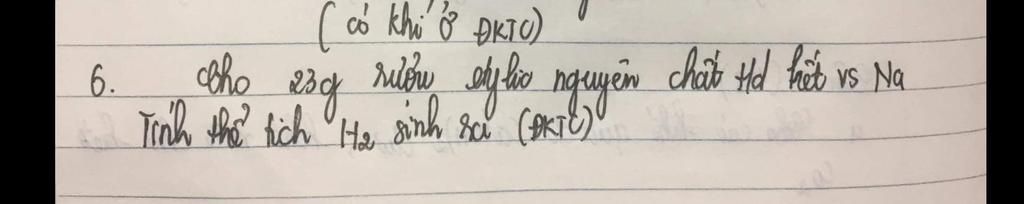 ( có khí ở ĐKTC)
6. Cho 23g rượu etylic nguyên chất td hết vs Na
Tính thể tích H2 sinh ra (ĐKTC)